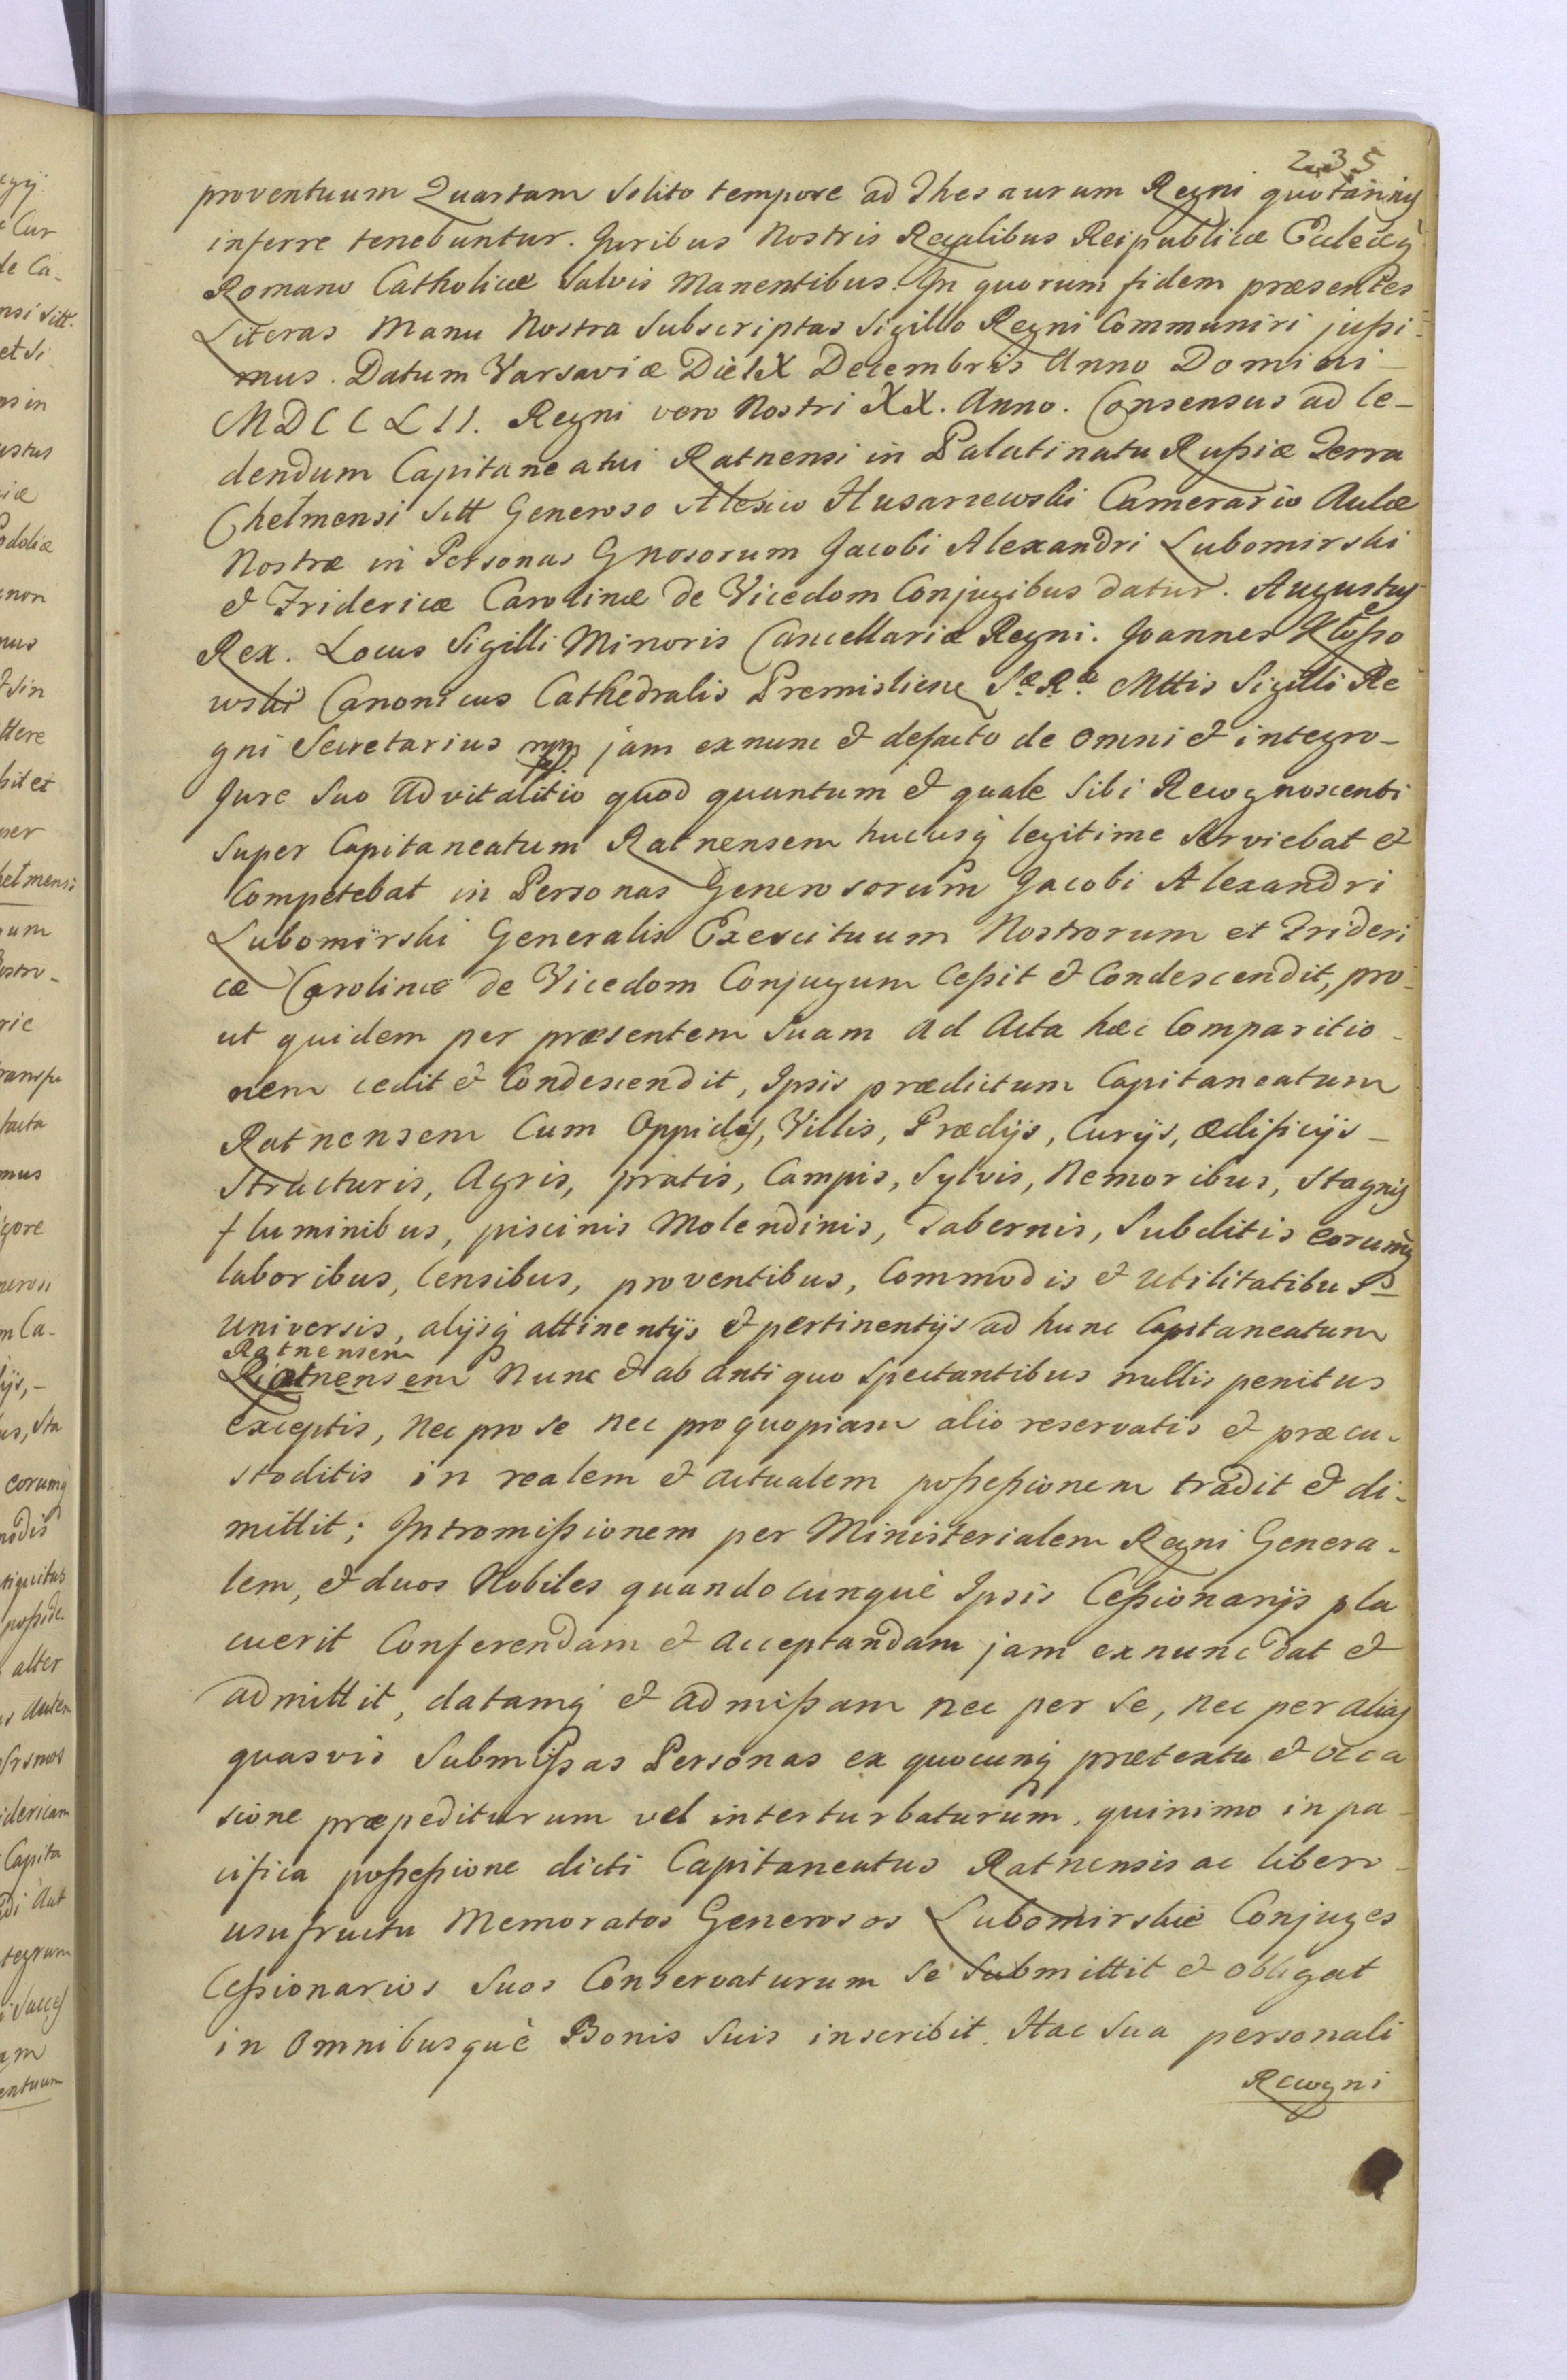 235
proventuum Quartam Solito tempore ad Thesaurum Regni quotannis
inferre tenebuntur. Juribus Nostris Regalibus Reipublicæ Ecclesięq̀
Romano Catholicæ Salvis Manentibus. In quorum fidem præsentes
Literas Manu Nostra Subscriptas Sigillo Regni Communiri jußi-
mus. Datum Varsaviæ Die IX Decembris Anno Domini –
MDCCLII. Regni vero Nostri XX. Anno. Consensus ad Ce-
dendum Capitaneatui Ratnensi in Palatinatu Rußiæ Terra
Chełmensi Sitt Generoso Alexio Husarzewski Camerario Aulæ
Nostræ in Personas Gnosorum Jacobi Alexandri Lubomirski
& Fridericæ Carolinæ de Vicedom Conjugibus datur. Augustus
Rex. Locus Sigilli Minoris Cancellariæ Regni. Joannes Kłoßo
wski Canonicus Cathedralis Premislien Sæ Ræ Mttis Sigilli Re
gni Secretarius jam exnunc & defacto de omni & integro –
Jure Suo Advitalitio quod quantum & quale Sibi Recognoscenti
Super Capitaneatum Ratnensem hucusq̀ legitime Serviebat &
Competebat in Personas Generosorum Jacobi Alexandri
Lubomirski Generalis Exercituum Nostrorum et Frideri
cæ Carolinæ de Vicedom Conjugum Ceßit & Condescendit, pro-
ut quidem per præsentem Suam ad Acta hæc Comparitio-
nem cedit & Condescendit, Ipsis prædictum Capitaneatum
Ratnensem Cum Oppidis, Villis, Prædijs, Curijs, ædificijs –
Structuris, Agris, pratis, Campis, Sylvis, Nemoribus, Stagnis
fluminibus, piscinis Molendinis, Tabernis, Subditis eorumq̀
laboribus, Censibus, proventibus, Commodis & Utilitatibus
Universis, alijsq̀ attinentijs & pertinentijs ad hunc Capitaneatum
Ratnensem
Ratnensem Nunc & ab antiquo Spectantibus nullis penitus
exceptis, Nec pro se nec pro quopiam alio reservatis & præcu-
stoditis in realem & actualem poßeßionem tradit & di-
mittit; Intromißionem per Ministerialem Regni Genera-
lem, & duos Nobiles quandocunquè Ipsis Ceßionarijs pla
cuerit Conferendam & acceptandam jam exnunc dat &
admittit, datamq̀ & admißam nec per Se, nec per alias
quasvis Submißas Personas ex quocunq̀ prætextu & occa
sione præpediturum vel interturbaturum, quinimo in pa-
cifica poßeßione dicti Capitaneatus Ratnensis ac libero –
usufructu Memoratos Generosos Lubomirskie Conjuges
Ceßionarios Suos Conservaturum Se Submittit & obligat
in Omnibusquè Bonis Suis inscribit. Hac Sua personali
Recogni